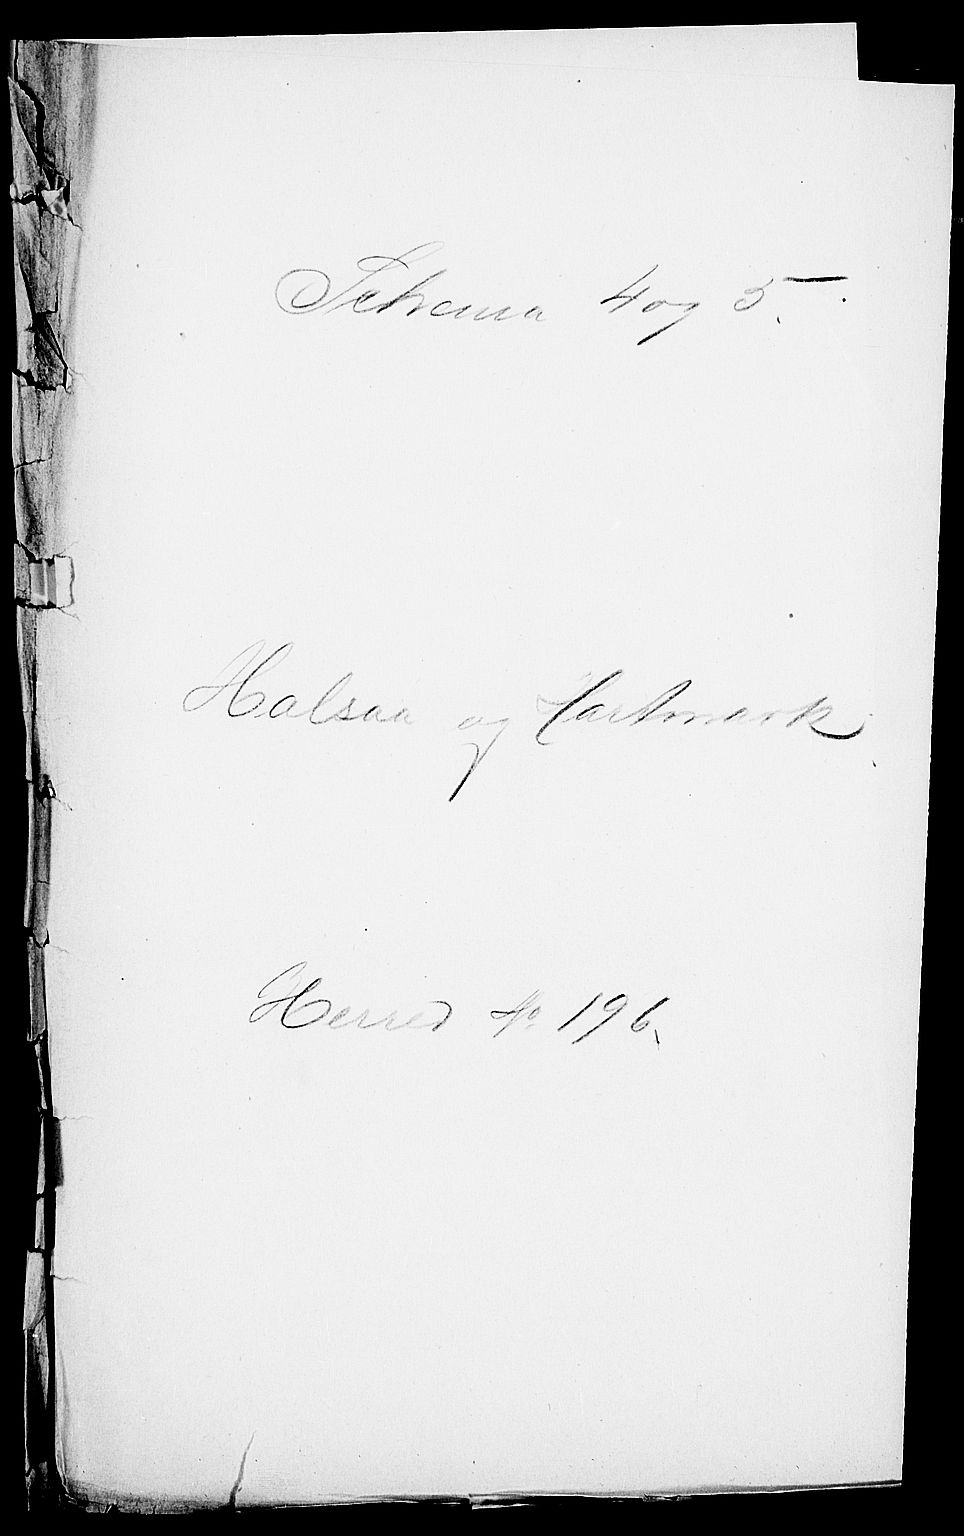 Schema 4 og 5.
Halsaa og Hartmark
Herred No 196.